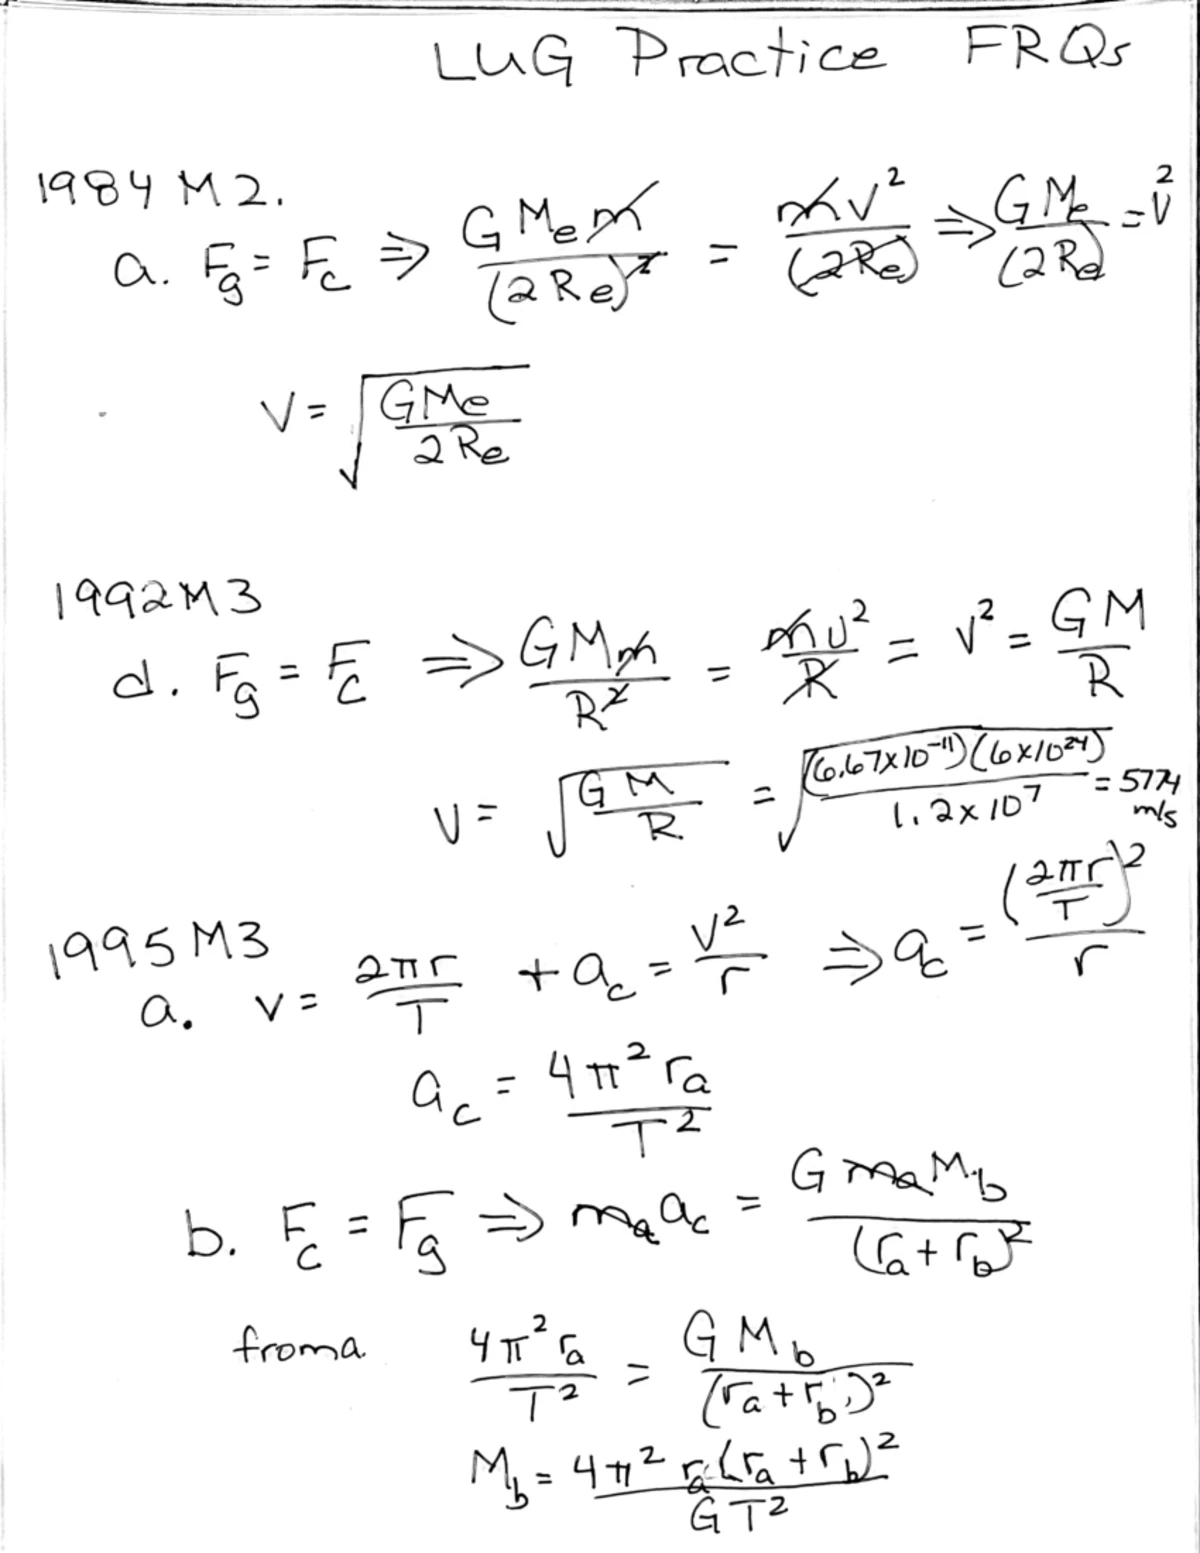 LUG Practice FRQs
1984 M2.
a. Fg = Fc ⇒ GMem/(2Re)² = mv²/(2Re) ⇒ GMe/(2Re) = v²
v = √(GMe/2Re)
1992M3
d. Fg = Fc ⇒ GMm/R² = mv²/R = v² = GM/R
v = √(GM/R) = √((6.67x10⁻¹¹)(6x10²⁴)/1.2x10⁷) = 5774 m/s
1995 M3
a. v = 2πr/T + ac = v²/r ⇒ ac = (2πr/T)²/r
ac = 4π²ra/T²
b. Fc = Fg ⇒ maac = GmaMb/(ra+rb)²
from a 4π²ra/T² = GMb/(ra+rb)²
Mb = 4π²ra(ra+rb)²/GT²